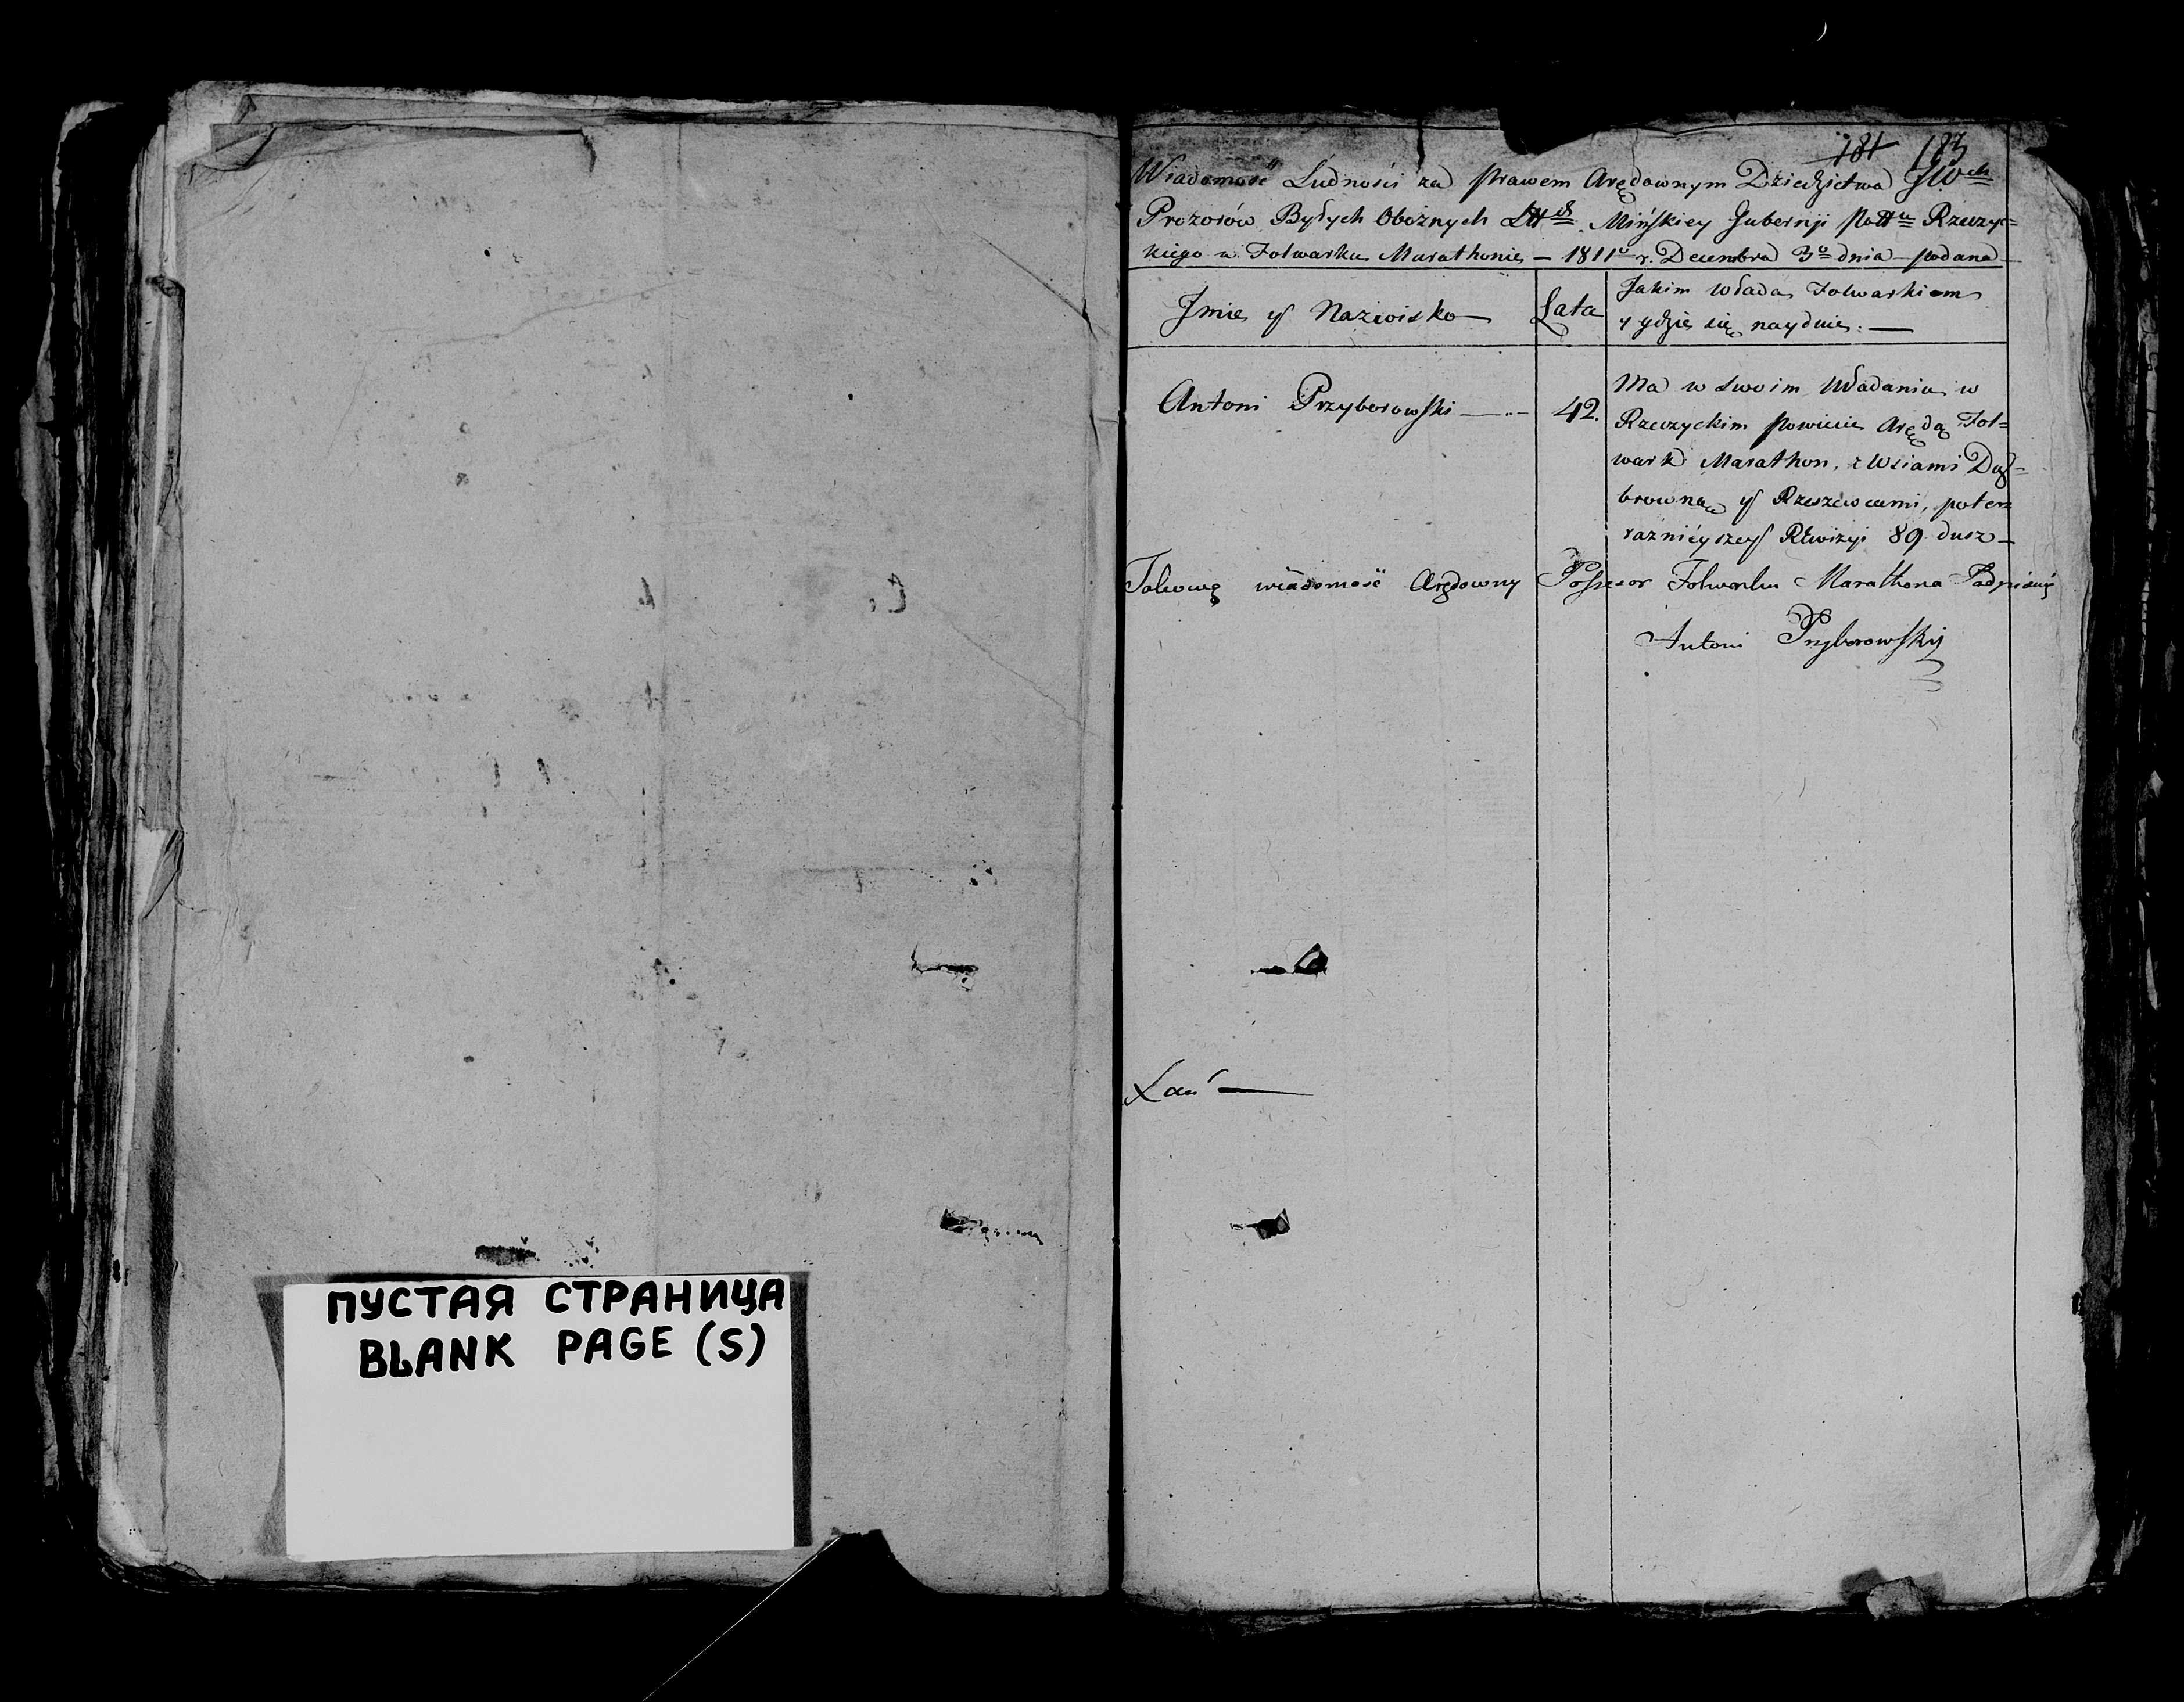 181 183
Wiadomość Ludności za Prawem Arędownym Dziedzictwa JWch
Prozorów Byłych Oboznych Mińskiey Gubernji Rzeczyc=
kiego w Folwarku Marathonie — 1811o r. Decembra 3o dnia podana
Jmie y Nazwisko
Lata
Jakim włada Folwarkiem
y gdzie się nayduie. —
Antoni Przyborowski
42.
Ma w swoim Władaniu w
Rzeczyckim Powiecie Arędą Fol=
wark Marathon, z Wsiami Dą=
browną y Rzeszowcami, poter=
raznieyszey Rewizyi 89 dusz —
Takową wiadomość Arędowny Possesor Folwarku Marathona Podpisuię
Antoni Przyborowski
ПУСТАЯ СТРАНИЦА
BLANK PAGE (S)